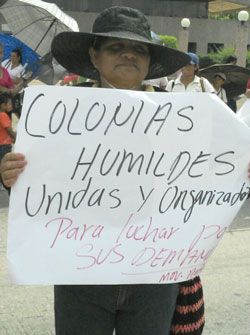 COLONIAS
HUMILDES
Unidas y Organizadas
Para luchar por
SUS DEMAN
MOV.